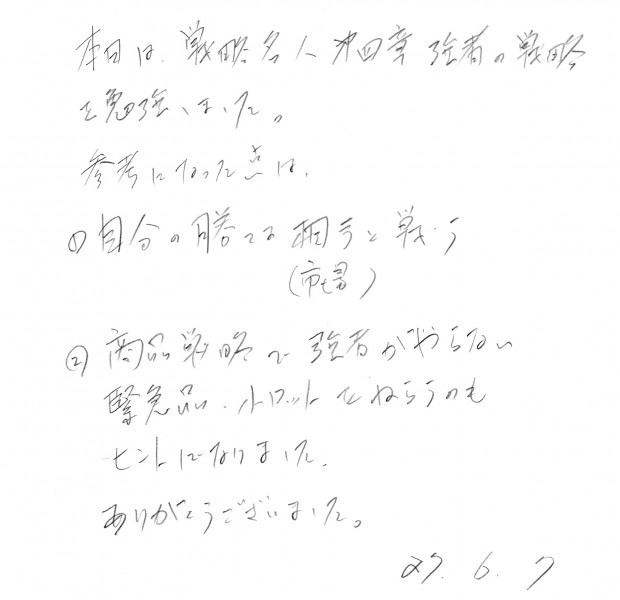 本日は、戦略名人 第四章 強者の戦略
を勉強いました。
参考になった点は、
① 自分の勝てる 相手と戦う
(市場)
② 商品戦略で 強者がやらない
緊急品・小ロットをねらうのも
ヒントになりました。
ありがとうございました。
27. 6. 7